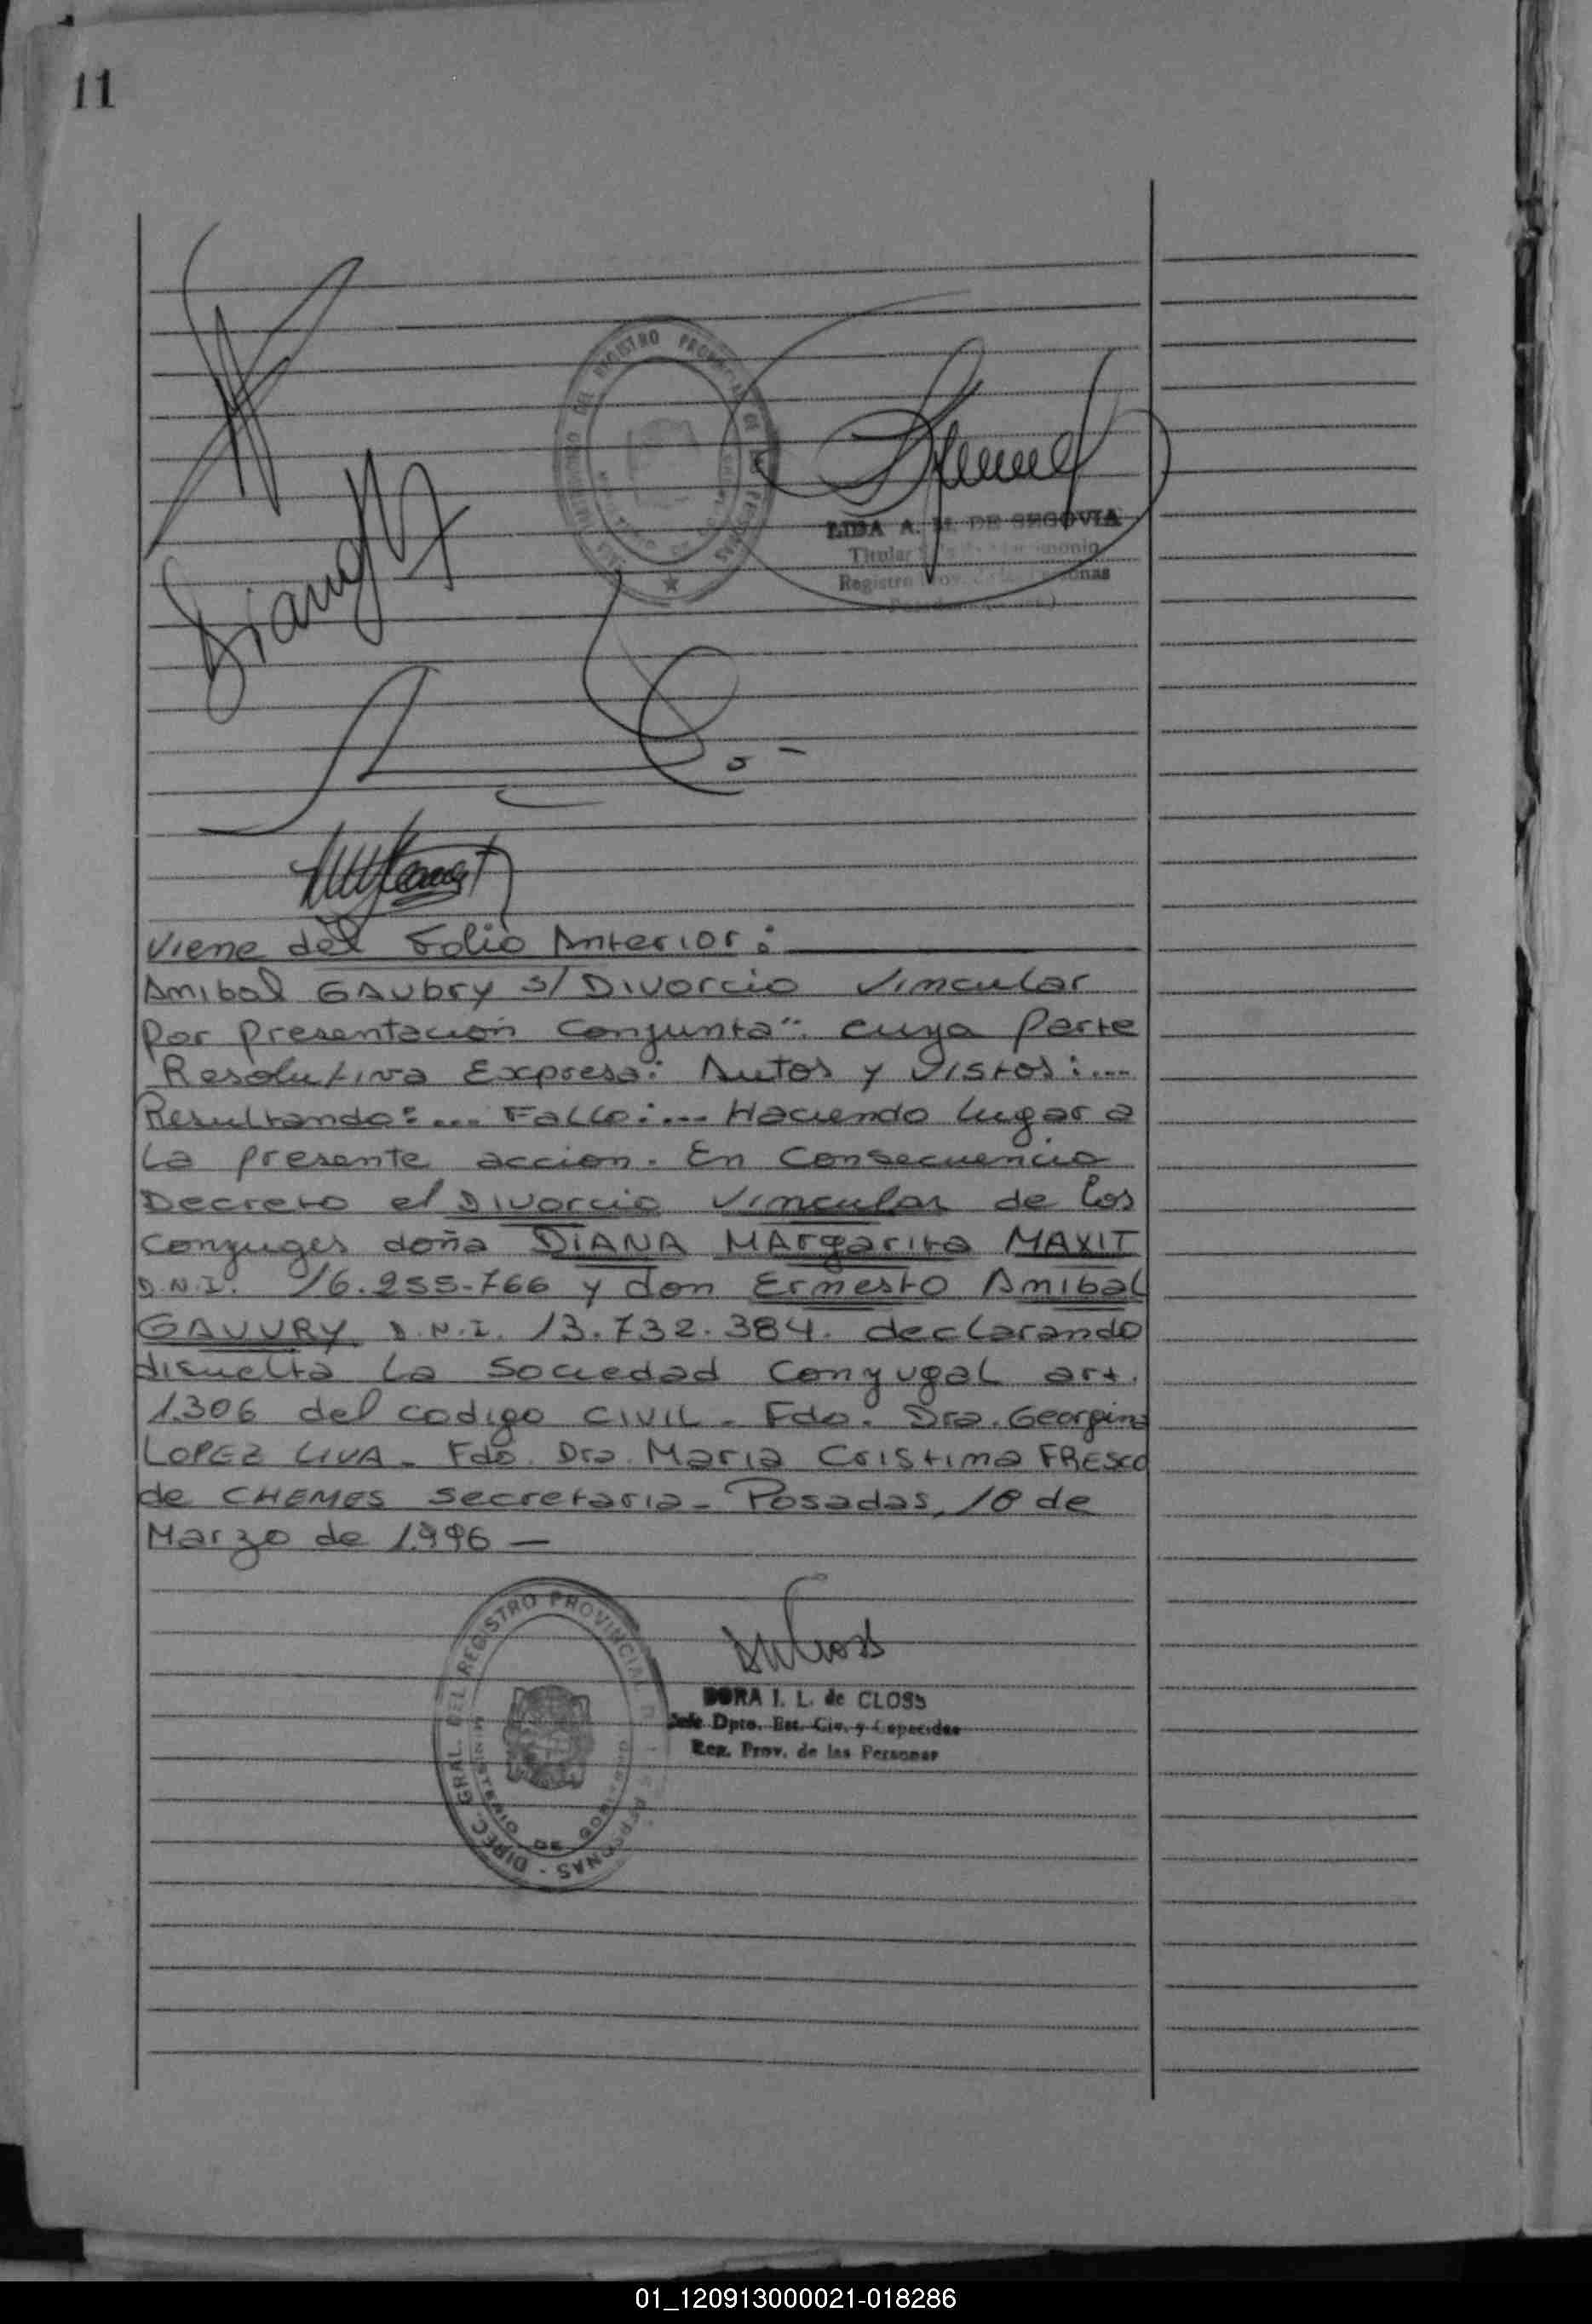 11
DEL REGISTRO PROVINCIAL DE LAS PERSONAS
LIDA A. M. DE SEGOVIA
Titular
Registro Prov. de las Personas
Viene del Folio Anterior:
Anibal GAUbry s/ Divorcio Vincular
por presentación Conjunta". cuya Parte
Resolutiva Expresa: Autos y Vistos:...
Resultando:... Fallo:... Haciendo lugar a
la presente accion. En Consecuencia
Decreto el Divorcio Vincular de los
conyuges doña DIANA MArgarita MAXIT
D.N.I. 16.255.766 y don Ernesto Anibal
GAUVRY D.N.I. 13.732.384. declarando
disuelta la Sociedad Conyugal art.
1.306 del codigo CIVIL. Fdo. Dra. Georgina
LOPEZ LIVA. Fdo. Dra. Maria Cristina FRESCO
de CHEMES secretaria. Posadas, 18 de
Marzo de 1.996 —
DIREC. GRAL. DEL REGISTRO PROVINCIAL DE LAS PERSONAS
MINISTERIO DE GOBIERNO
DORA I. L. de CLOSS
Jefe Dpto. Est. Civ. y Capacidad
Reg. Prov. de las Personas
01_120913000021-018286